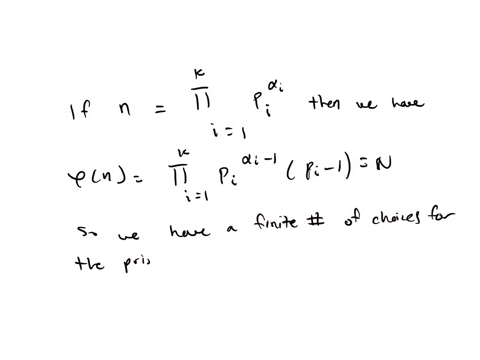 If n = ∏_{i=1}^{k} p_i^{α_i} then we have
φ(n) = ∏_{i=1}^{k} p_i^{α_i-1} (p_i-1) = N
So we have a finite # of choices for
the pris